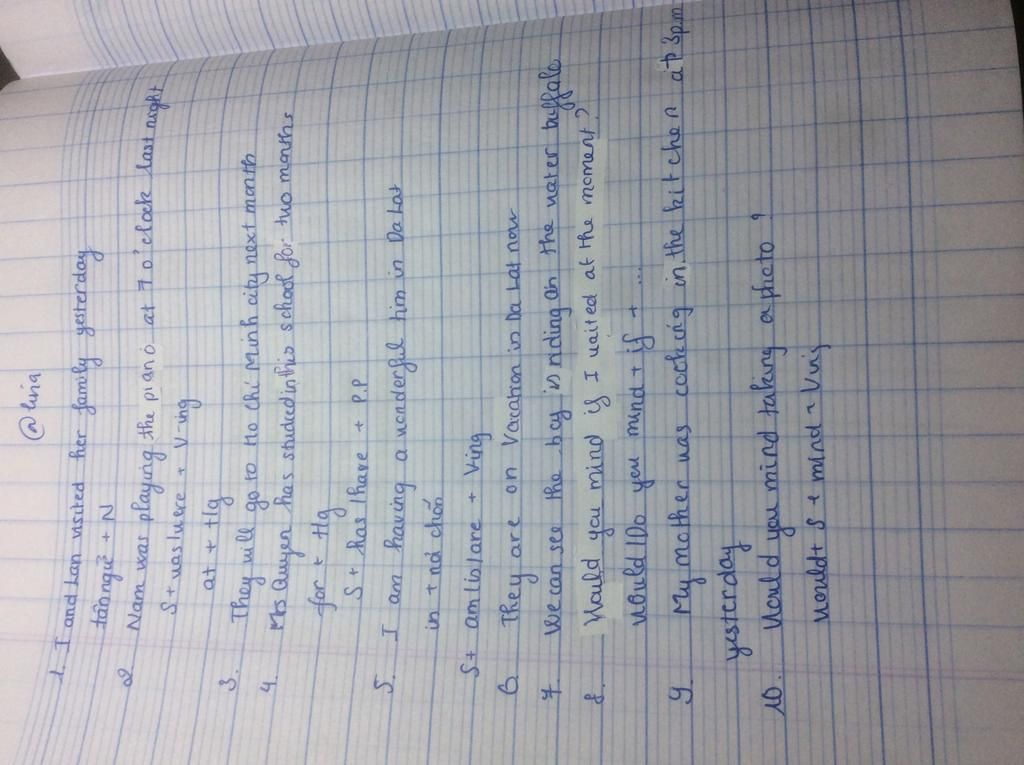 @lina
1. I and Lan visited her family yesterday
tân ngữ + N
2 Nam was playing the piano at 7 o'clock last night
S + was/were + V-ing
at + tg
3. They will go to Ho Chi Minh city next month
4. Mrs Quyen has studied in this school for two months
for + tg
S + has/have + P.P
5. I am having a wonderful him in Da Lat
in + nơi chốn
S+ am/is/are + Ving
6. They are on Vacation in Da Lat now
7 We can see the boy is riding on the water buffalo
8. Would you mind if I waited at the moment?
Would/Do you mind + if + ...
9 My mother was cooking in the kitchen at 3p.m
yesterday
10. Would you mind taking a photo ?
Would + S + mind ~ Ving